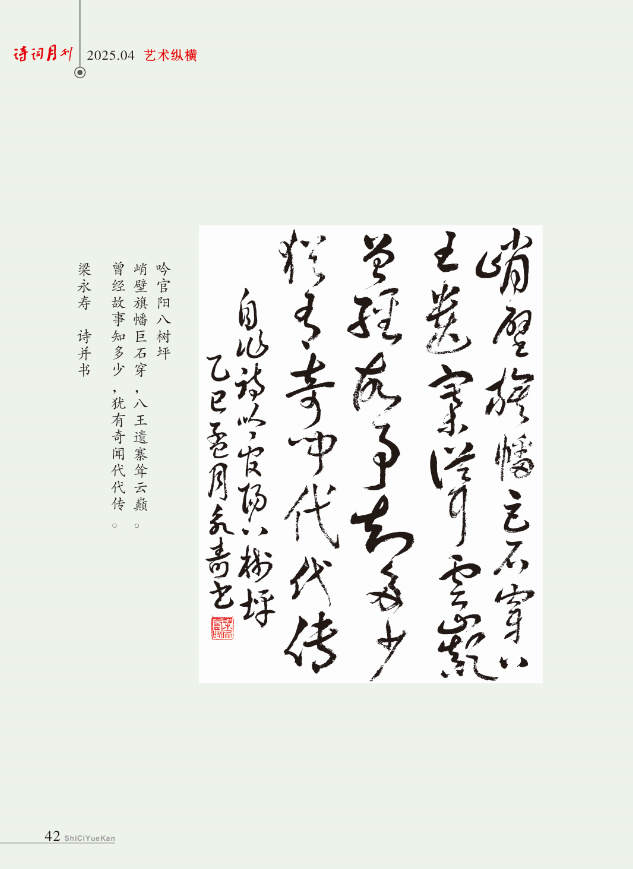 诗词月刊 2025.04 艺术纵横
吟官阳八树坪
峭壁旗幡巨石穿，八王遗寨耸云巅。
曾经故事知多少，犹有奇闻代代传。
梁永寿 诗并书
峭壁旗幡巨石穿八
王遗寨耸云巅
曾经故事知多少
犹有奇闻代代传
自作诗吟官阳八树坪
乙巳孟月永寿书
42 ShiCiYueKan